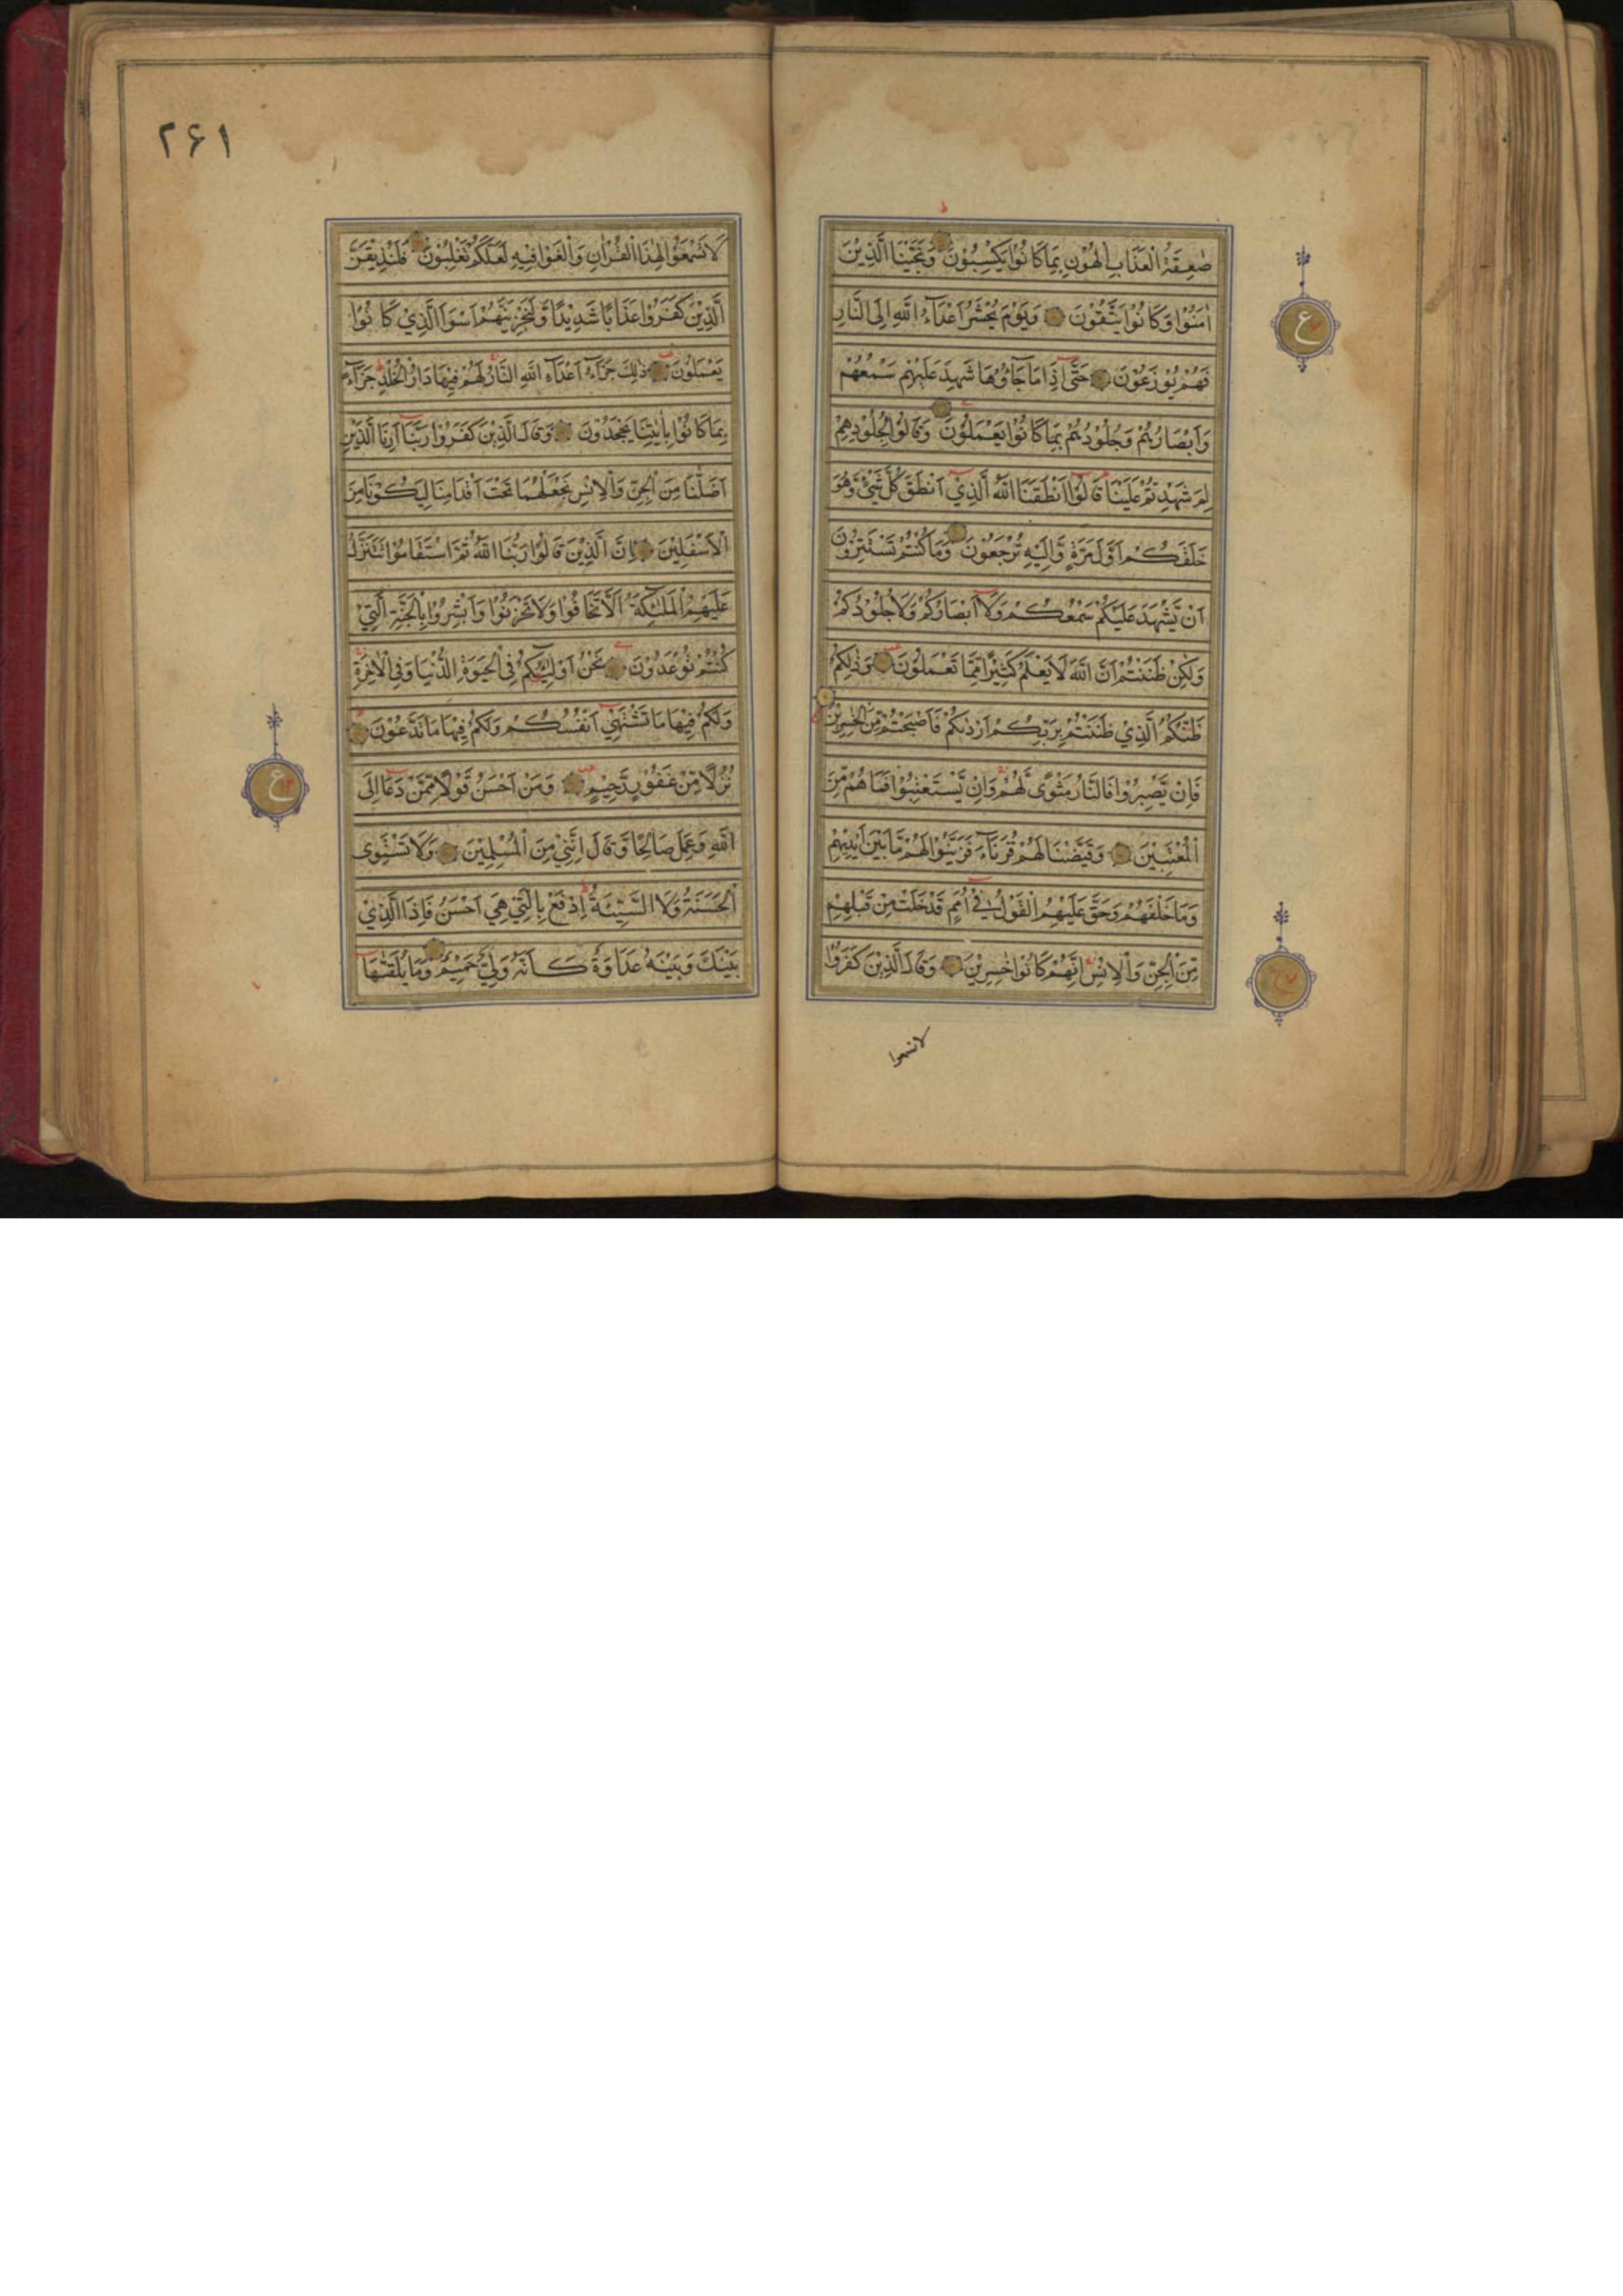 صٰعِقَةُ الْعَذَابِ الْهُوْنِ بِمَا كَانُوْا يَكْسِبُوْنَ وَنَجَّيْنَا الَّذِيْنَ
اٰمَنُوْا وَكَانُوْا يَتَّقُوْنَ وَيَوْمَ يُحْشَرُ اَعْدَآءُ اللّٰهِ اِلَى النَّارِ
فَهُمْ يُوْزَعُوْنَ حَتّٰٓى اِذَا مَا جَآؤُهَا شَهِدَ عَلَيْهِمْ سَمْعُهُمْ
وَاَبْصَارُهُمْ وَجُلُوْدُهُمْ بِمَا كَانُوْا يَعْمَلُوْنَ وَقَالُوْا لِجُلُوْدِهِمْ
لِمَ شَهِدْتُمْ عَلَيْنَا قَالُوْٓا اَنْطَقَنَا اللّٰهُ الَّذِيْٓ اَنْطَقَ كُلَّ شَيْءٍ وَّهُوَ
خَلَقَكُمْ اَوَّلَ مَرَّةٍ وَّاِلَيْهِ تُرْجَعُوْنَ وَمَا كُنْتُمْ تَسْتَتِرُوْنَ
اَنْ يَّشْهَدَ عَلَيْكُمْ سَمْعُكُمْ وَلَآ اَبْصَارُكُمْ وَلَا جُلُوْدُكُمْ
وَلٰكِنْ ظَنَنْتُمْ اَنَّ اللّٰهَ لَا يَعْلَمُ كَثِيْرًا مِّمَّا تَعْمَلُوْنَ وَذٰلِكُمْ
ظَنُّكُمُ الَّذِيْ ظَنَنْتُمْ بِرَبِّكُمْ اَرْدٰىكُمْ فَاَصْبَحْتُمْ مِّنَ الْخٰسِرِيْنَ
فَاِنْ يَّصْبِرُوْا فَالنَّارُ مَثْوًى لَّهُمْ وَاِنْ يَّسْتَعْتِبُوْا فَمَا هُمْ مِّنَ
الْمُعْتَبِيْنَ وَقَيَّضْنَا لَهُمْ قُرَنَآءَ فَزَيَّنُوْا لَهُمْ مَّا بَيْنَ اَيْدِيْهِمْ
وَمَا خَلْفَهُمْ وَحَقَّ عَلَيْهِمُ الْقَوْلُ فِيْٓ اُمَمٍ قَدْ خَلَتْ مِنْ قَبْلِهِمْ
مِّنَ الْجِنِّ وَالْاِنْسِ اِنَّهُمْ كَانُوْا خٰسِرِيْنَ وَقَالَ الَّذِيْنَ كَفَرُوْا
لا تسمعوا
ع
ع ٧
٢۶١
لَا تَسْمَعُوْا لِهٰذَا الْقُرْاٰنِ وَالْغَوْا فِيْهِ لَعَلَّكُمْ تَغْلِبُوْنَ فَلَنُذِيْقَنَّ
الَّذِيْنَ كَفَرُوْا عَذَابًا شَدِيْدًا وَّلَنَجْزِيَنَّهُمْ اَسْوَاَ الَّذِيْ كَانُوْا
يَعْمَلُوْنَ ذٰلِكَ جَزَآءُ اَعْدَآءِ اللّٰهِ النَّارُ لَهُمْ فِيْهَا دَارُ الْخُلْدِ جَزَآءً
بِمَا كَانُوْا بِاٰيٰتِنَا يَجْحَدُوْنَ وَقَالَ الَّذِيْنَ كَفَرُوْا رَبَّنَآ اَرِنَا الَّذَيْنِ
اَضَلّٰنَا مِنَ الْجِنِّ وَالْاِنْسِ نَجْعَلْهُمَا تَحْتَ اَقْدَامِنَا لِيَكُوْنَا مِنَ
الْاَسْفَلِيْنَ اِنَّ الَّذِيْنَ قَالُوْا رَبُّنَا اللّٰهُ ثُمَّ اسْتَقَامُوْا تَتَنَزَّلُ
عَلَيْهِمُ الْمَلٰٓئِكَةُ اَلَّا تَخَافُوْا وَلَا تَحْزَنُوْا وَاَبْشِرُوْا بِالْجَنَّةِ الَّتِيْ
كُنْتُمْ تُوْعَدُوْنَ نَحْنُ اَوْلِيٰٓؤُكُمْ فِي الْحَيٰوةِ الدُّنْيَا وَفِي الْاٰخِرَةِ
وَلَكُمْ فِيْهَا مَا تَشْتَهِيْٓ اَنْفُسُكُمْ وَلَكُمْ فِيْهَا مَا تَدَّعُوْنَ
نُزُلًا مِّنْ غَفُوْرٍ رَّحِيْمٍ وَمَنْ اَحْسَنُ قَوْلًا مِّمَّنْ دَعَآ اِلَى
اللّٰهِ وَعَمِلَ صَالِحًا وَّقَالَ اِنَّنِيْ مِنَ الْمُسْلِمِيْنَ وَلَا تَسْتَوِى
الْحَسَنَةُ وَلَا السَّيِّئَةُ اِدْفَعْ بِالَّتِيْ هِيَ اَحْسَنُ فَاِذَا الَّذِيْ
بَيْنَكَ وَبَيْنَهُ عَدَاوَةٌ كَاَنَّهُ وَلِيٌّ حَمِيْمٌ وَمَا يُلَقّٰىهَآ
ع